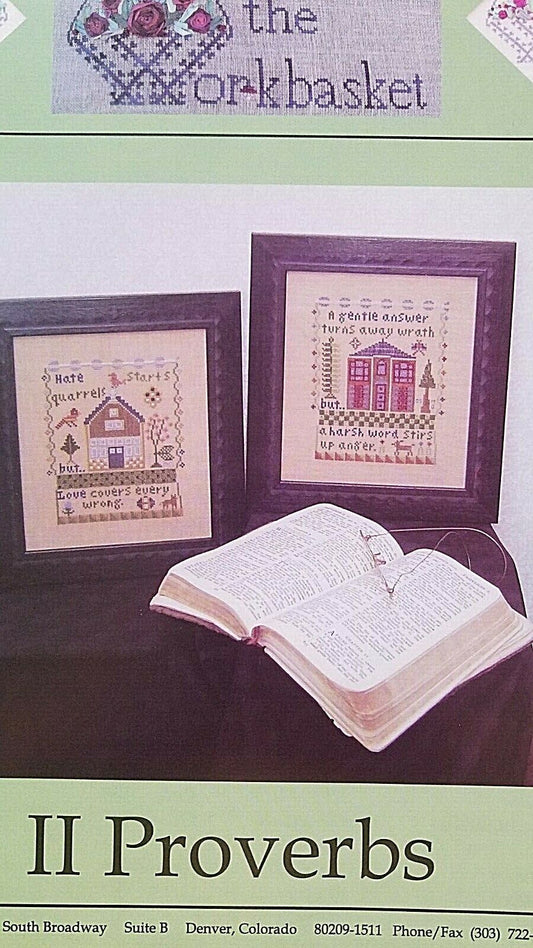 the
Workbasket
A gentle answer
turns away wrath
but..
a harsh word stirs
up anger.
Hate starts
quarrels
but..
Love covers every
wrong.
II Proverbs
South Broadway Suite B Denver, Colorado 80209-1511 Phone/Fax (303) 722-